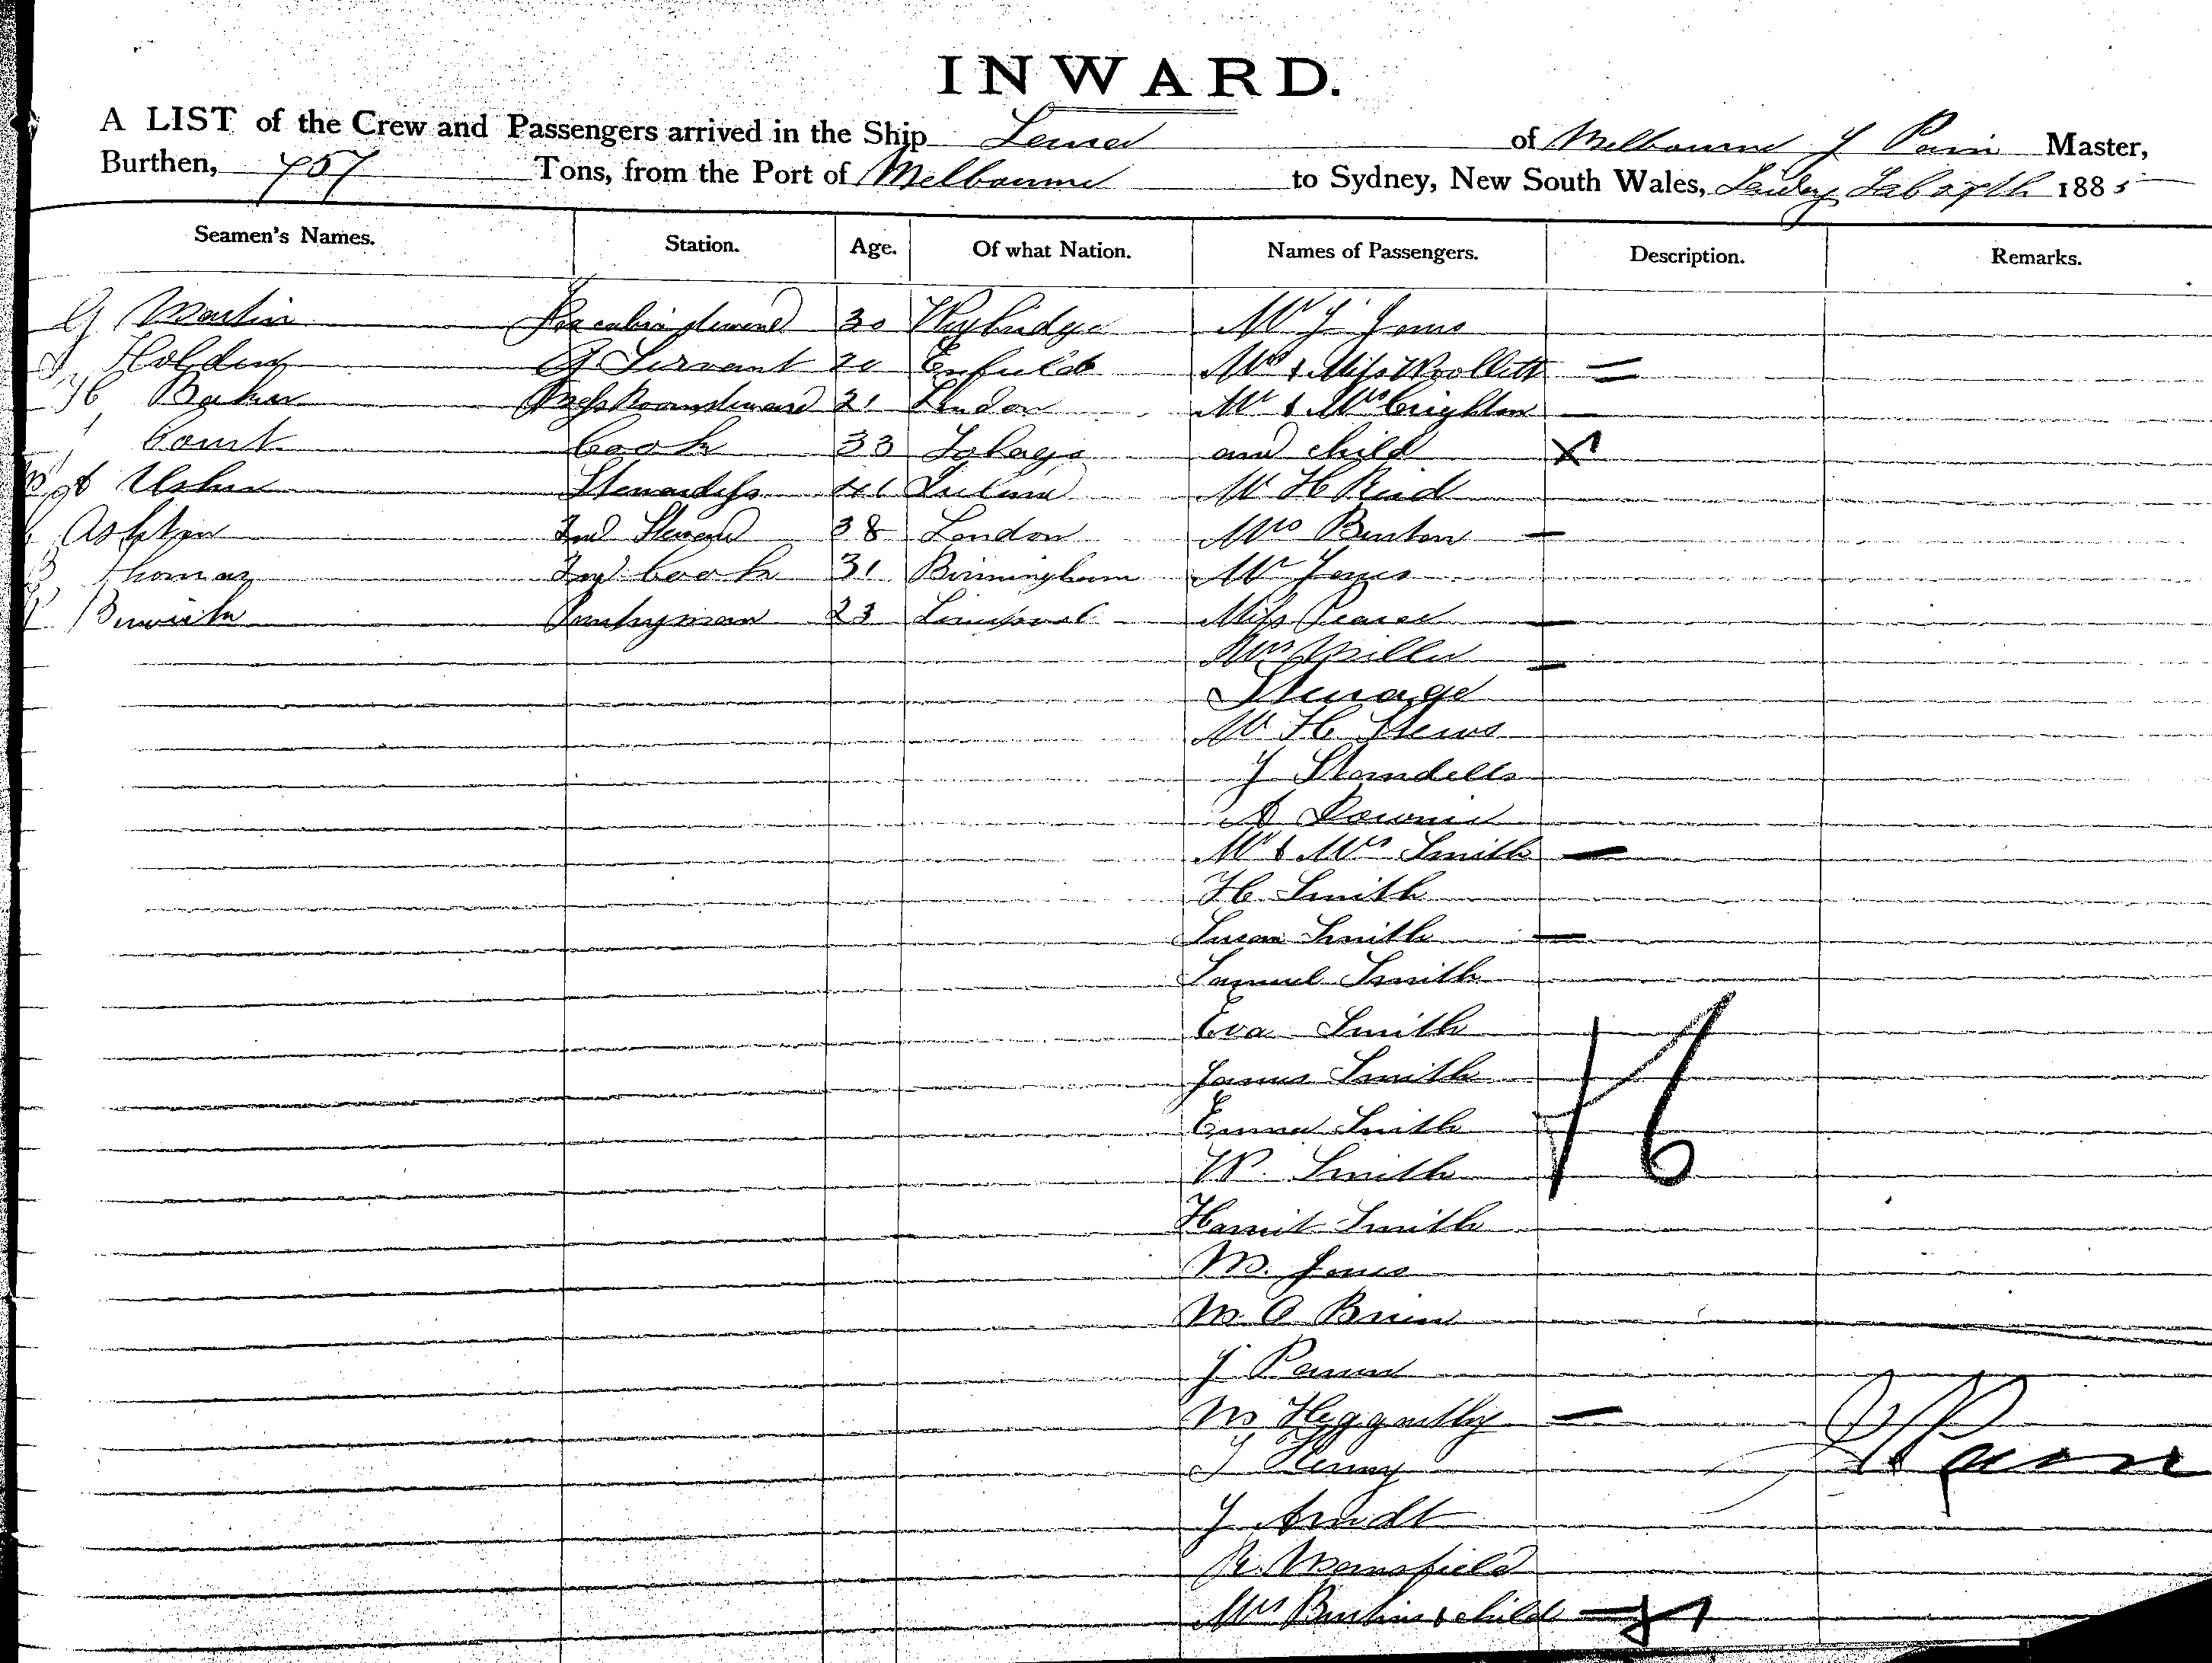 INWARD.
A LIST of the Crew and Passengers arrived in the Ship of Melbourne J Pain Master,
Burthen, 757 Tons, from the Port of Melbourne to Sydney, New South Wales, Feb 27th 1885
Seamen's Names. Station. Age. Of what Nation. Names of Passengers. Description. Remarks.
G Martin Forecabin Steward 30 Weybridge Mr J Jones
Holden G Servant 20 Enfield Mrs & Miss Woollett =
H Baker Messroom Steward 21 London Mr & Mrs Crighton —
Court Cook 33 Tobago and child X1
Usher Stewardess 41 Mr H Reid
Ashton 2nd Steward 38 London Mrs Benton —
Thomas 2nd Cook 31 Birmingham Mr Jones
Berwick Pantryman 23 Liverpool Miss Pearce —
Mrs Miller —
Steerage
Mr H
J Standells
A Downie
Mr & Mrs Smith —
H Smith
Susan Smith —
Samuel Smith
Eva Smith
James Smith
Emma Smith
W. Smith
Harriet Smith
M. Jones
M O Brien
J
M Heggarthy —
J Henny
J Arndt
R. Mansfield
Mrs & child
J Pain